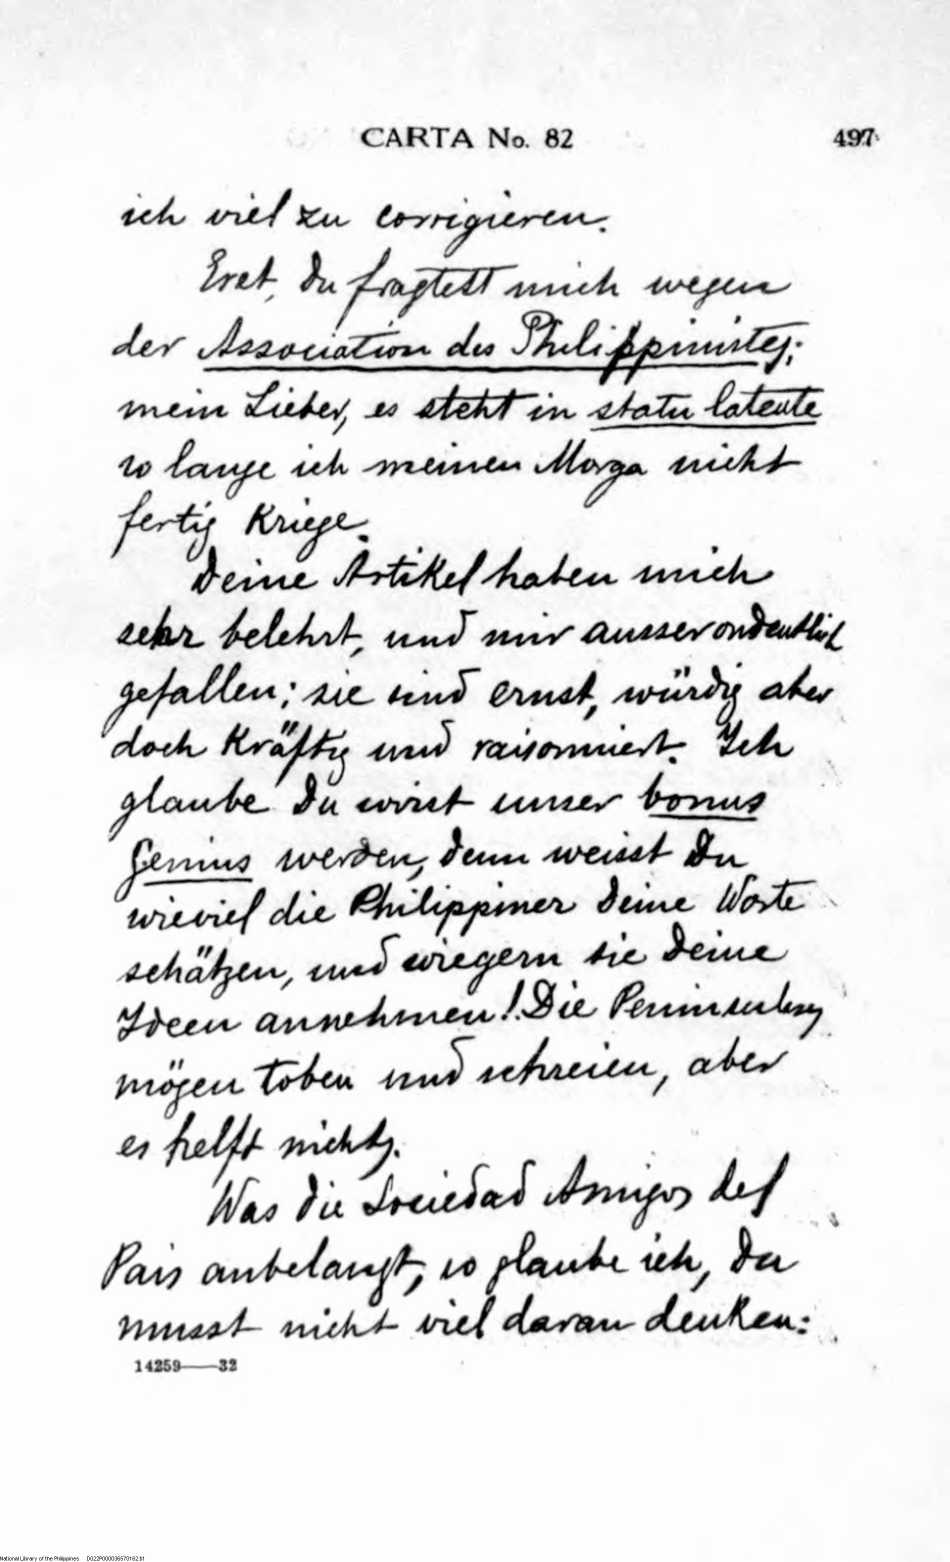 CARTA No. 82 497
ich viel zu corrigieren.
Erst, du fragtest mich wegen
der Association des Philippinistes;
mein Lieber, es steht in statu latente
so lange ich meinen Morga nicht
fertig kriege.
Deine Artikel haben mich
sehr belehrt, und mir ausserordentlich
gefallen; sie sind ernst, würdig aber
doch kräftig und raisonniert. Ich
glaube Du wirst unser bonus
Genius werden, denn weisst Du
wieviel die Philippiner Deine Worte
schätzen, und wiegern sie Deine
Ideen annehmen! Die Peninsulares
mögen toben und schreien, aber
es helft nichts.
Was die Sociedad Amigos del
Pais anbelangt, so glaube ich, Du
musst nicht viel daran denken:
14259——32
National Library of the Philippines